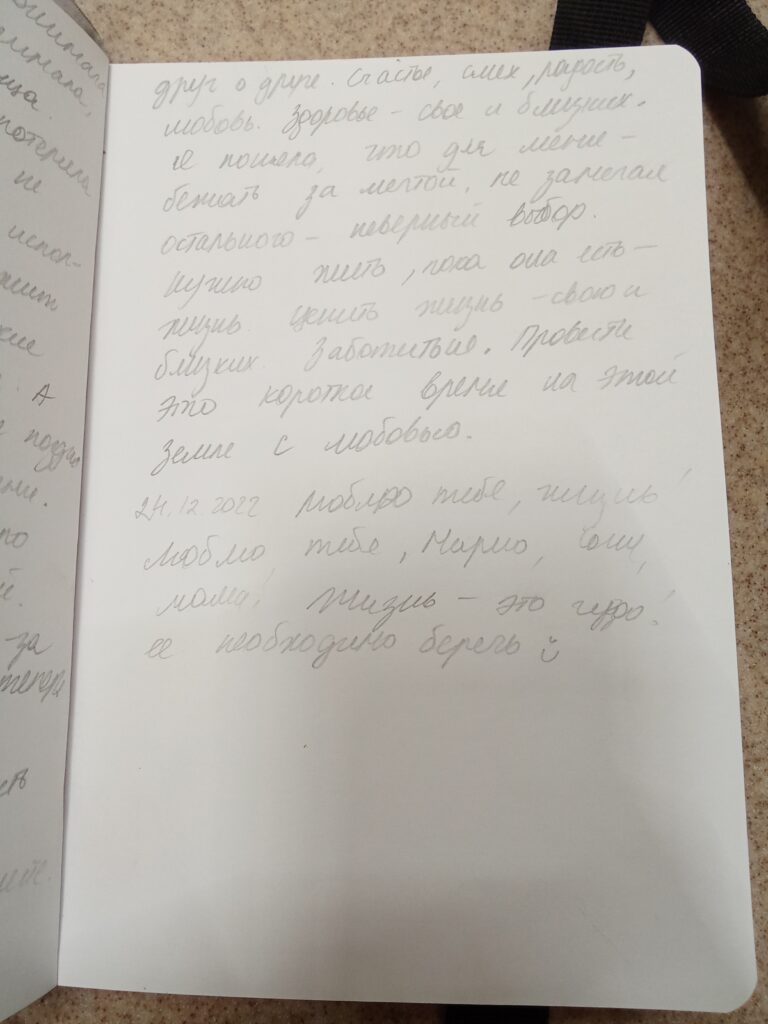 друг о друге. Счастье, смех, радость,
любовь. Здоровье - свое и близких.
Я поняла, что для меня -
бежать за мечтой, не замечая
остального - неверный выбор.
Нужно жить, пока она есть -
жизнь. Ценить жизнь - свою и
близких. Заботиться. Провести
это короткое время на этой
Земле с любовью.
24.12.2022 Люблю тебя, жизнь!
Люблю тебя, Марио,
мама! Жизнь - это чудо!
Ее необходимо беречь :)
потеряла
не
испол-
А
поздно
по
за
теперь